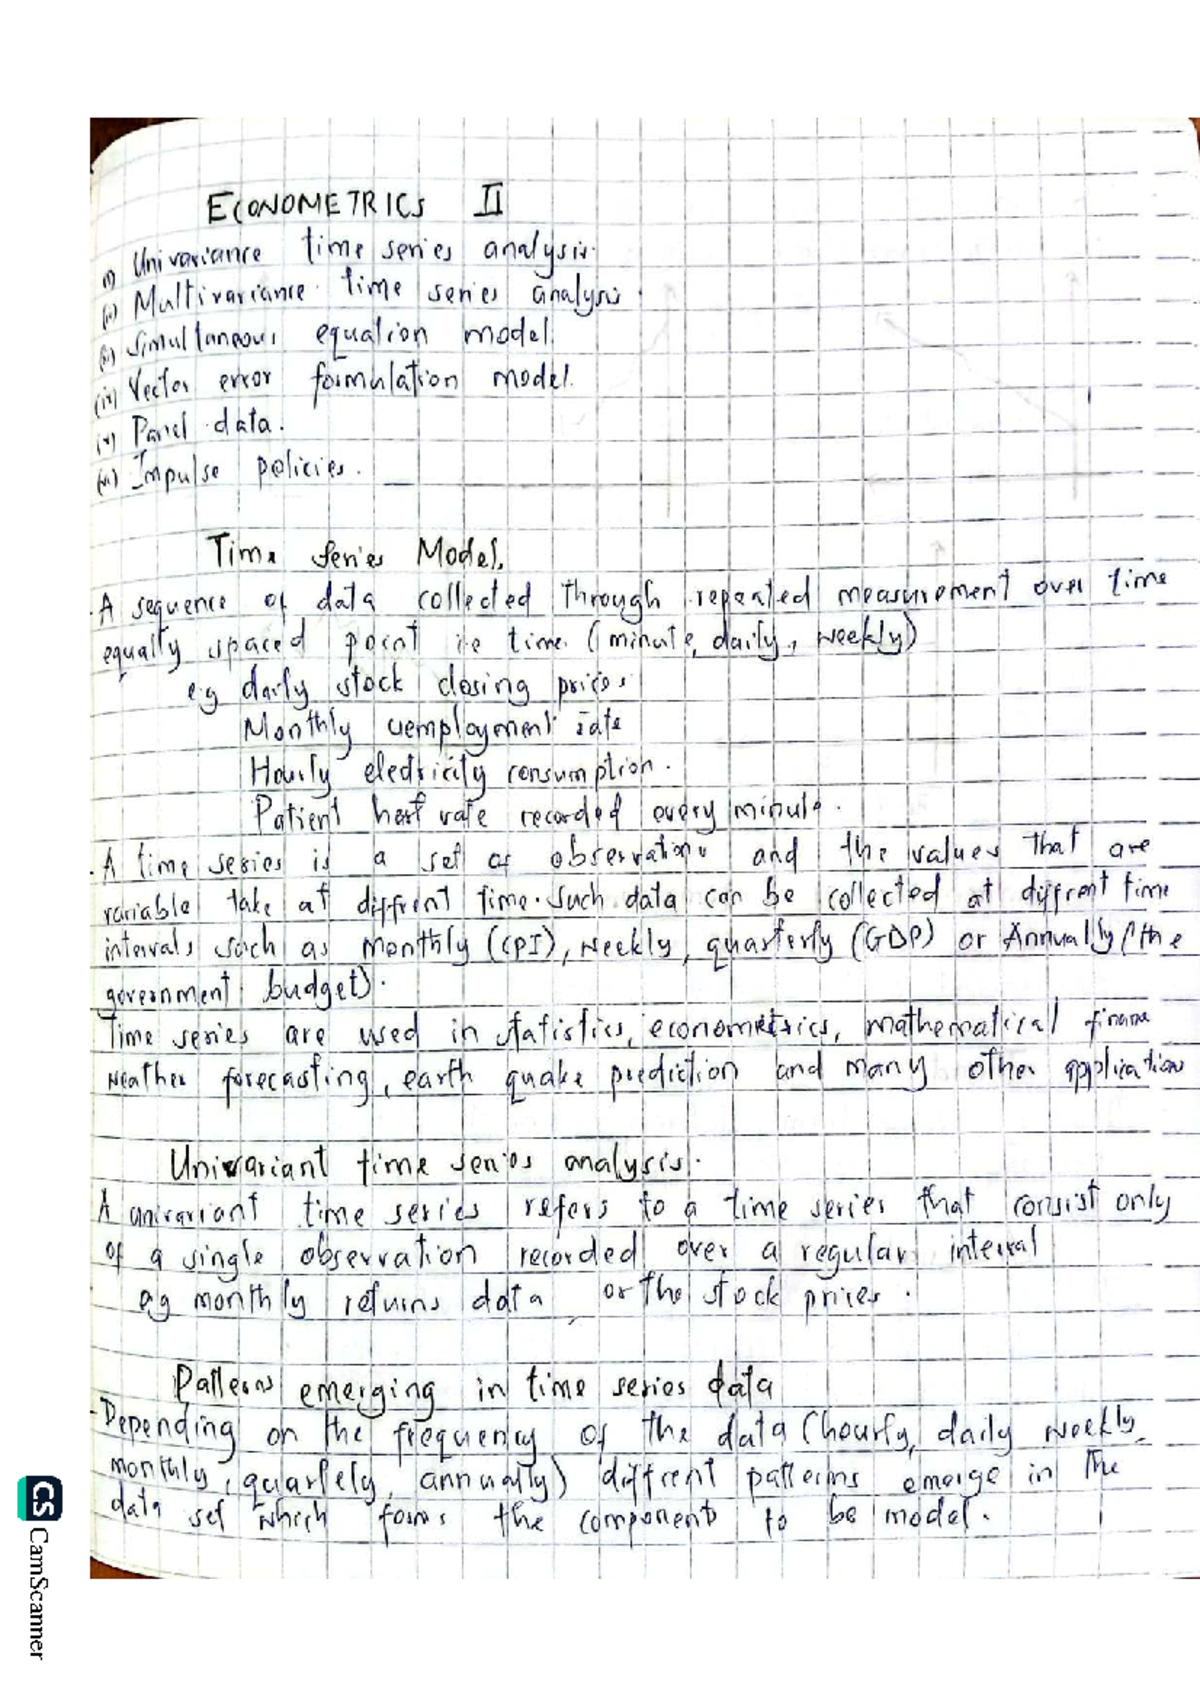 ECONOMETRICS II
(i) Univariance time series analysis.
(ii) Multivariance time series analysis
(iii) Simultaneous equation model.
(iv) Vector error formulation model.
(v) Panel data.
(vi) Impulse policies.
Time series Model.
- A sequence of data collected through repeated measurement over time
equally spaced point ie time (minute, daily, weekly)
eg daily stock closing prices
Monthly uemployment rate
Hourly electricity consumption.
Patient hert rate recorded every minute.
- A time series is a set of observations and the values that are
variable take at diffrent time. Such data can be collected at diffrent time
intervals such as monthly (CPI), weekly, quarterly (GDP) or Annually (the
government budget).
Time series are used in statistics, econometrics, mathematical finance
weather forecasting, earth quake prediction and many other application
Univariant time series analysis.
A univariant time series refers to a time series that consist only
of a single observation recorded over a regular interval
eg monthly returns data or the stock prices.
Patterns emerging in time series data
- Depending on the frequency of the data (hourly, daily weekly,
monthly, quarterly, annually) diffrent patterns emerge in the
data set which forms the component to be model.
CS CamScanner